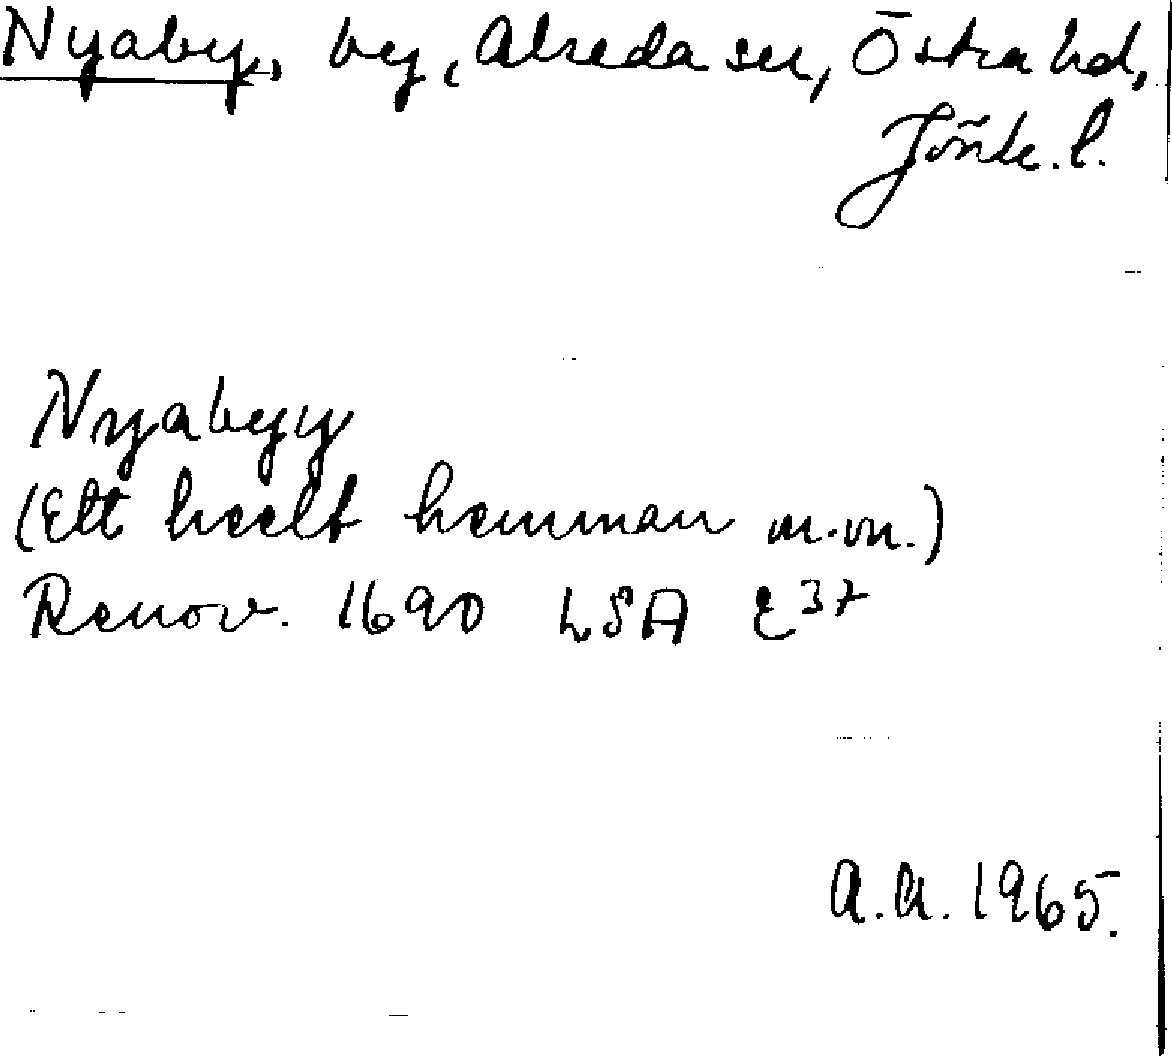 Nyaby, by, Alseda sn, Östra hd,
Jönk. l.
Nyabyy
(Ett heelt hemman m.m.)
Renov. 1690 LSA E37
A.A. 1965.